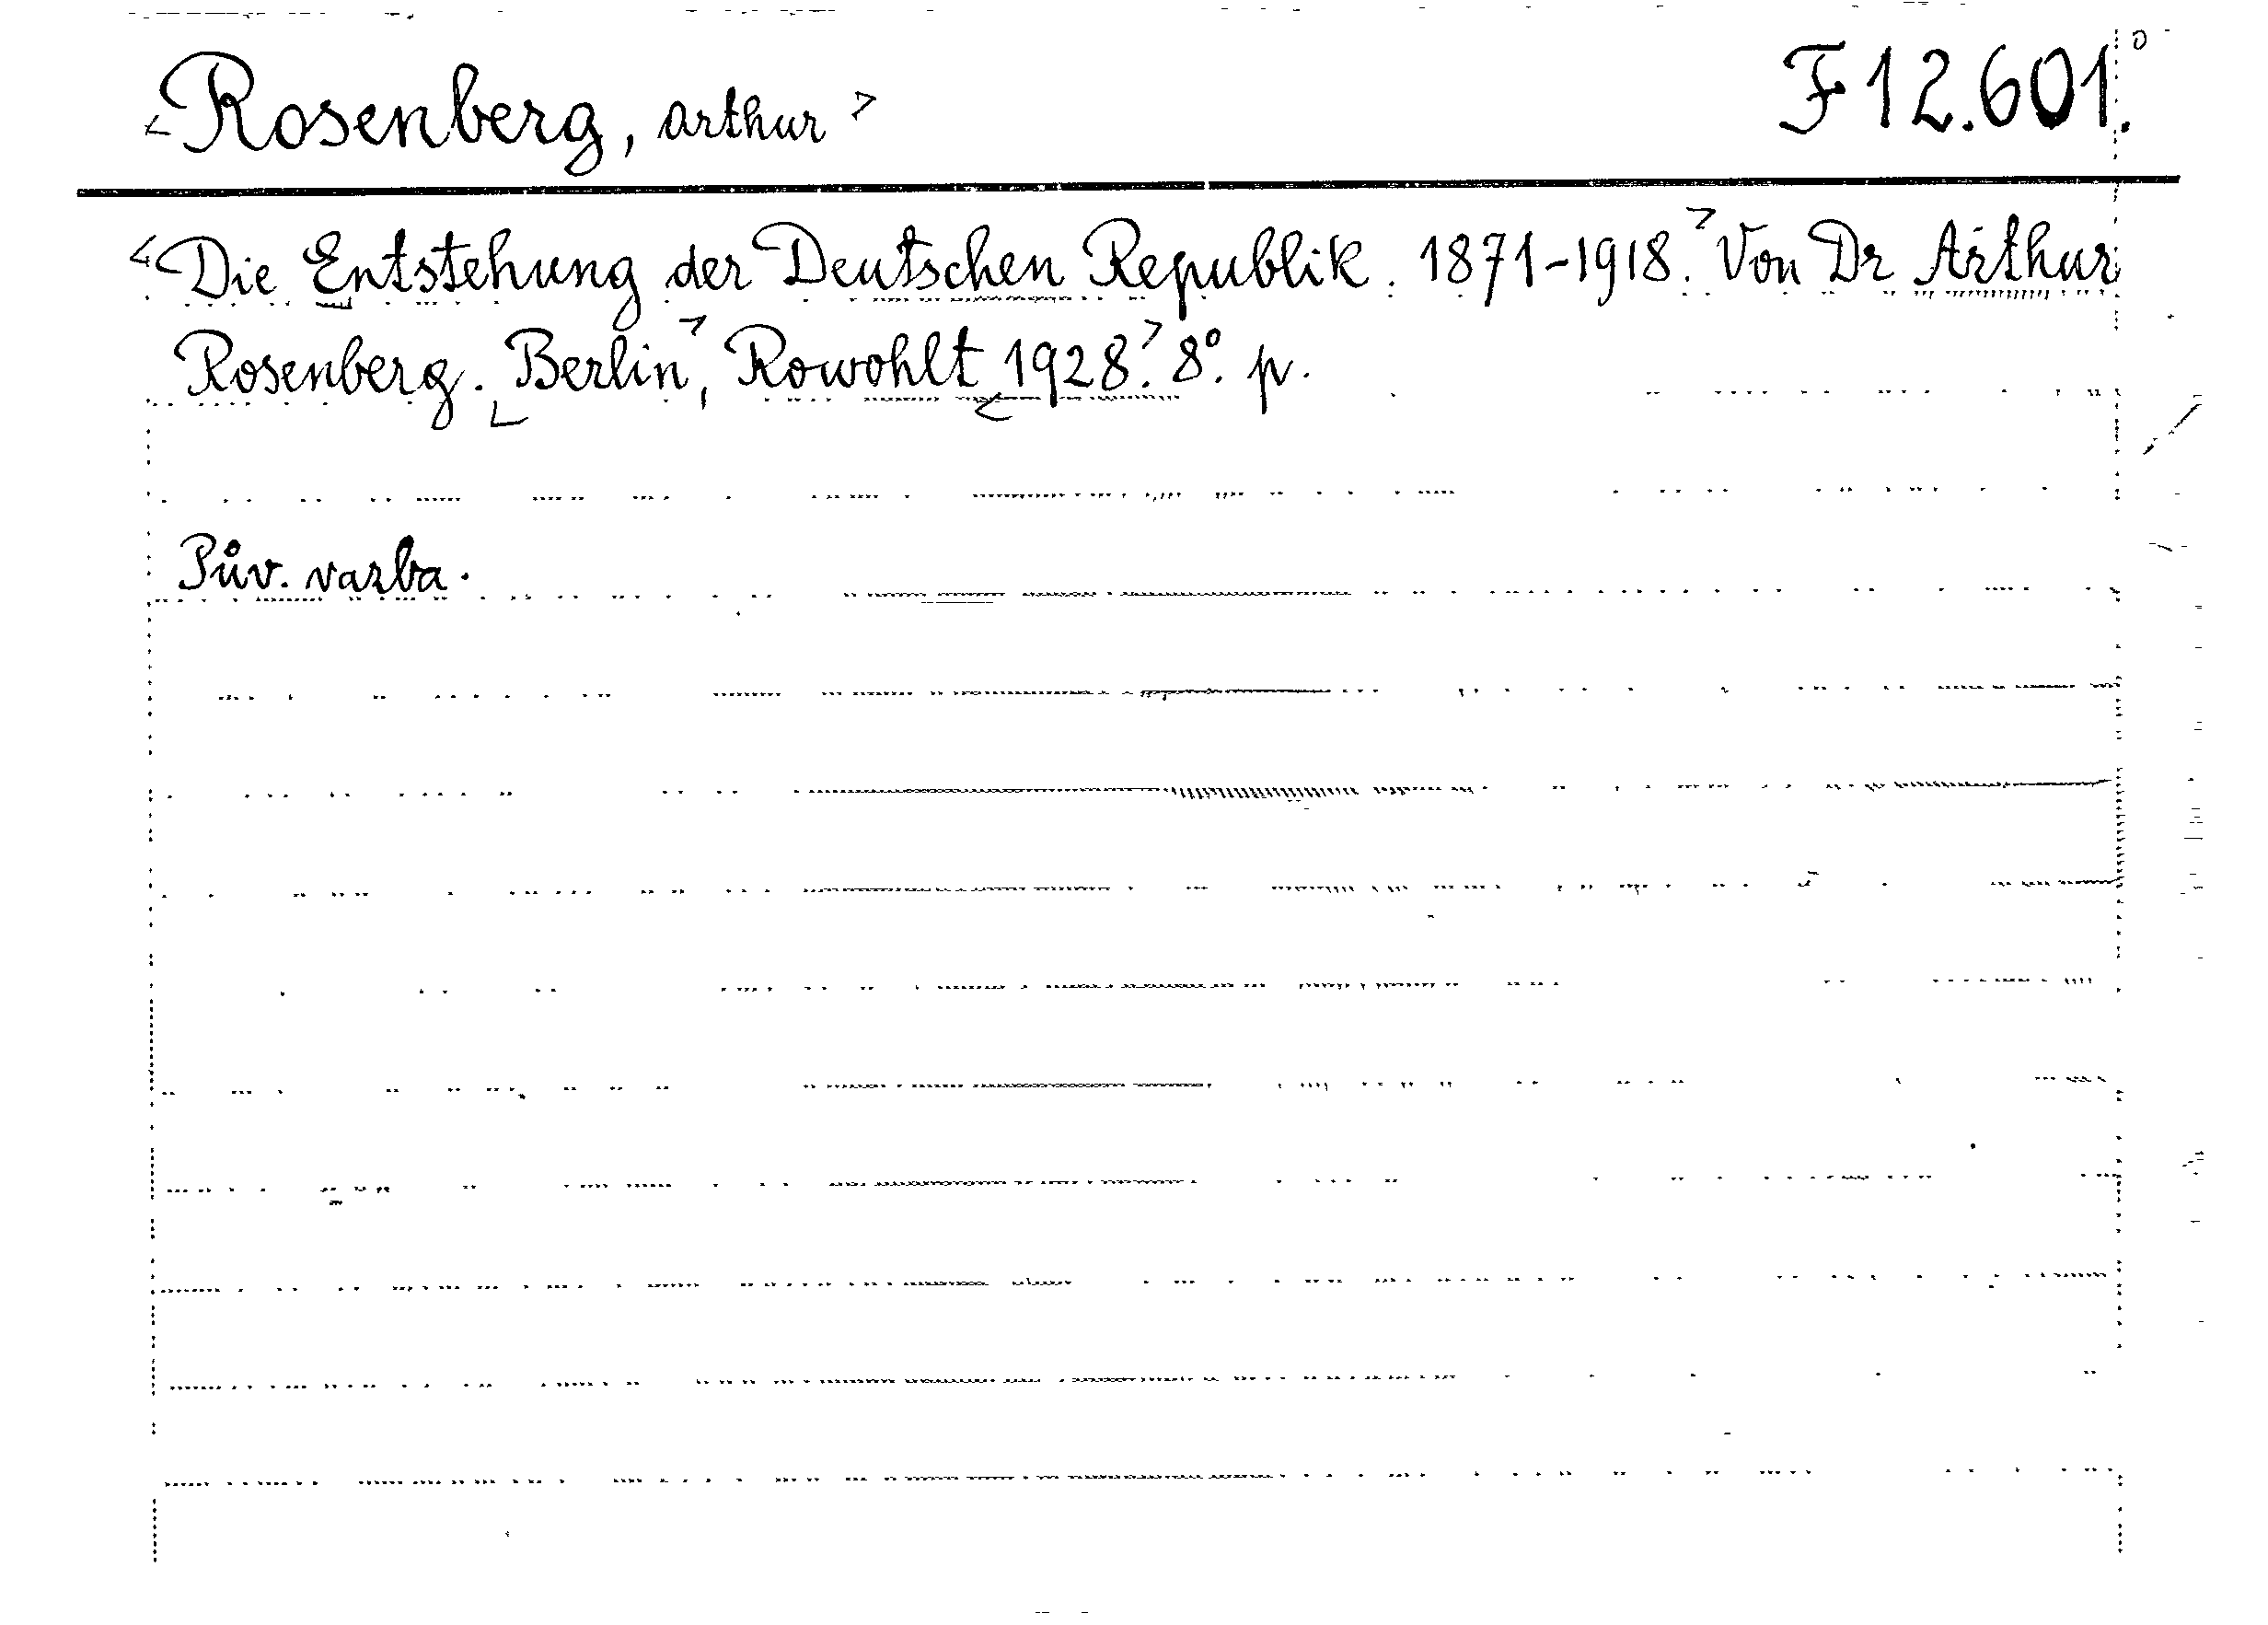 <Rosenberg, Arthur> F 12.601.
<Die Entstehung der Deutschen Republik. 1871-1918.> Von Dr Arthur
Rosenberg. <Berlin>, Rowohlt <1928.> 8°. p.
Pův. vazba.